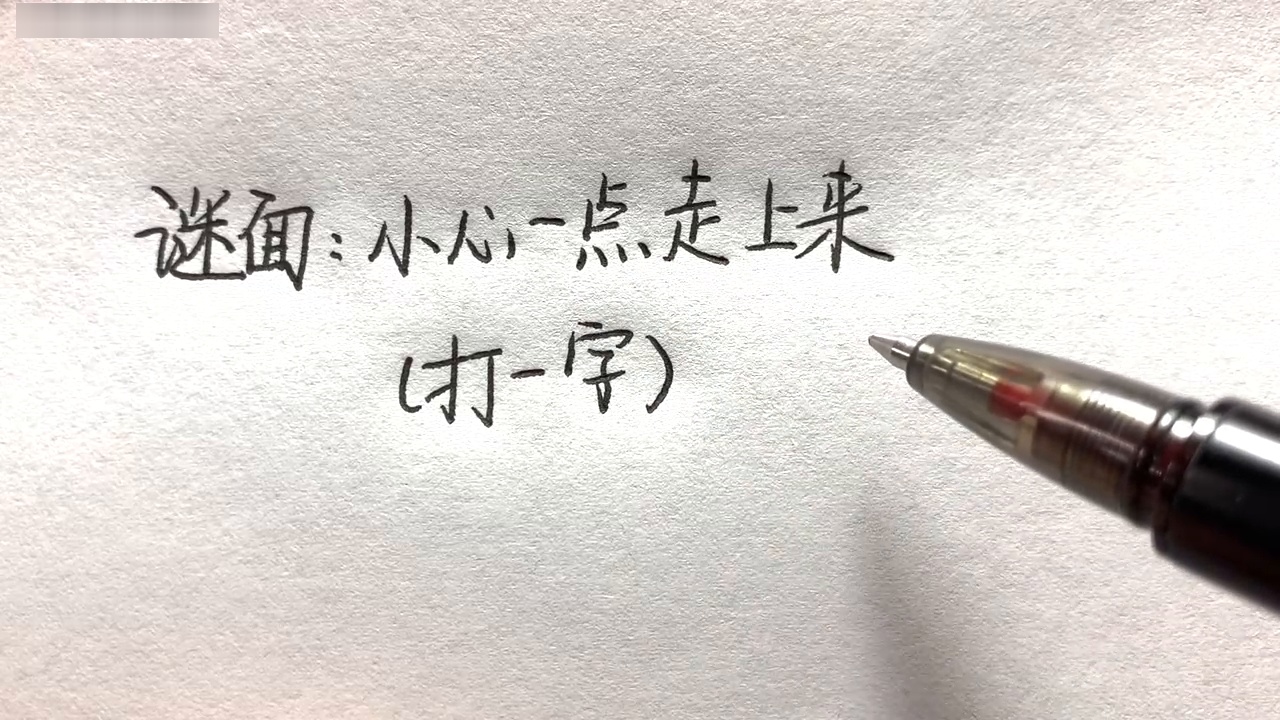 谜面:小心一点走上来
(打一字)